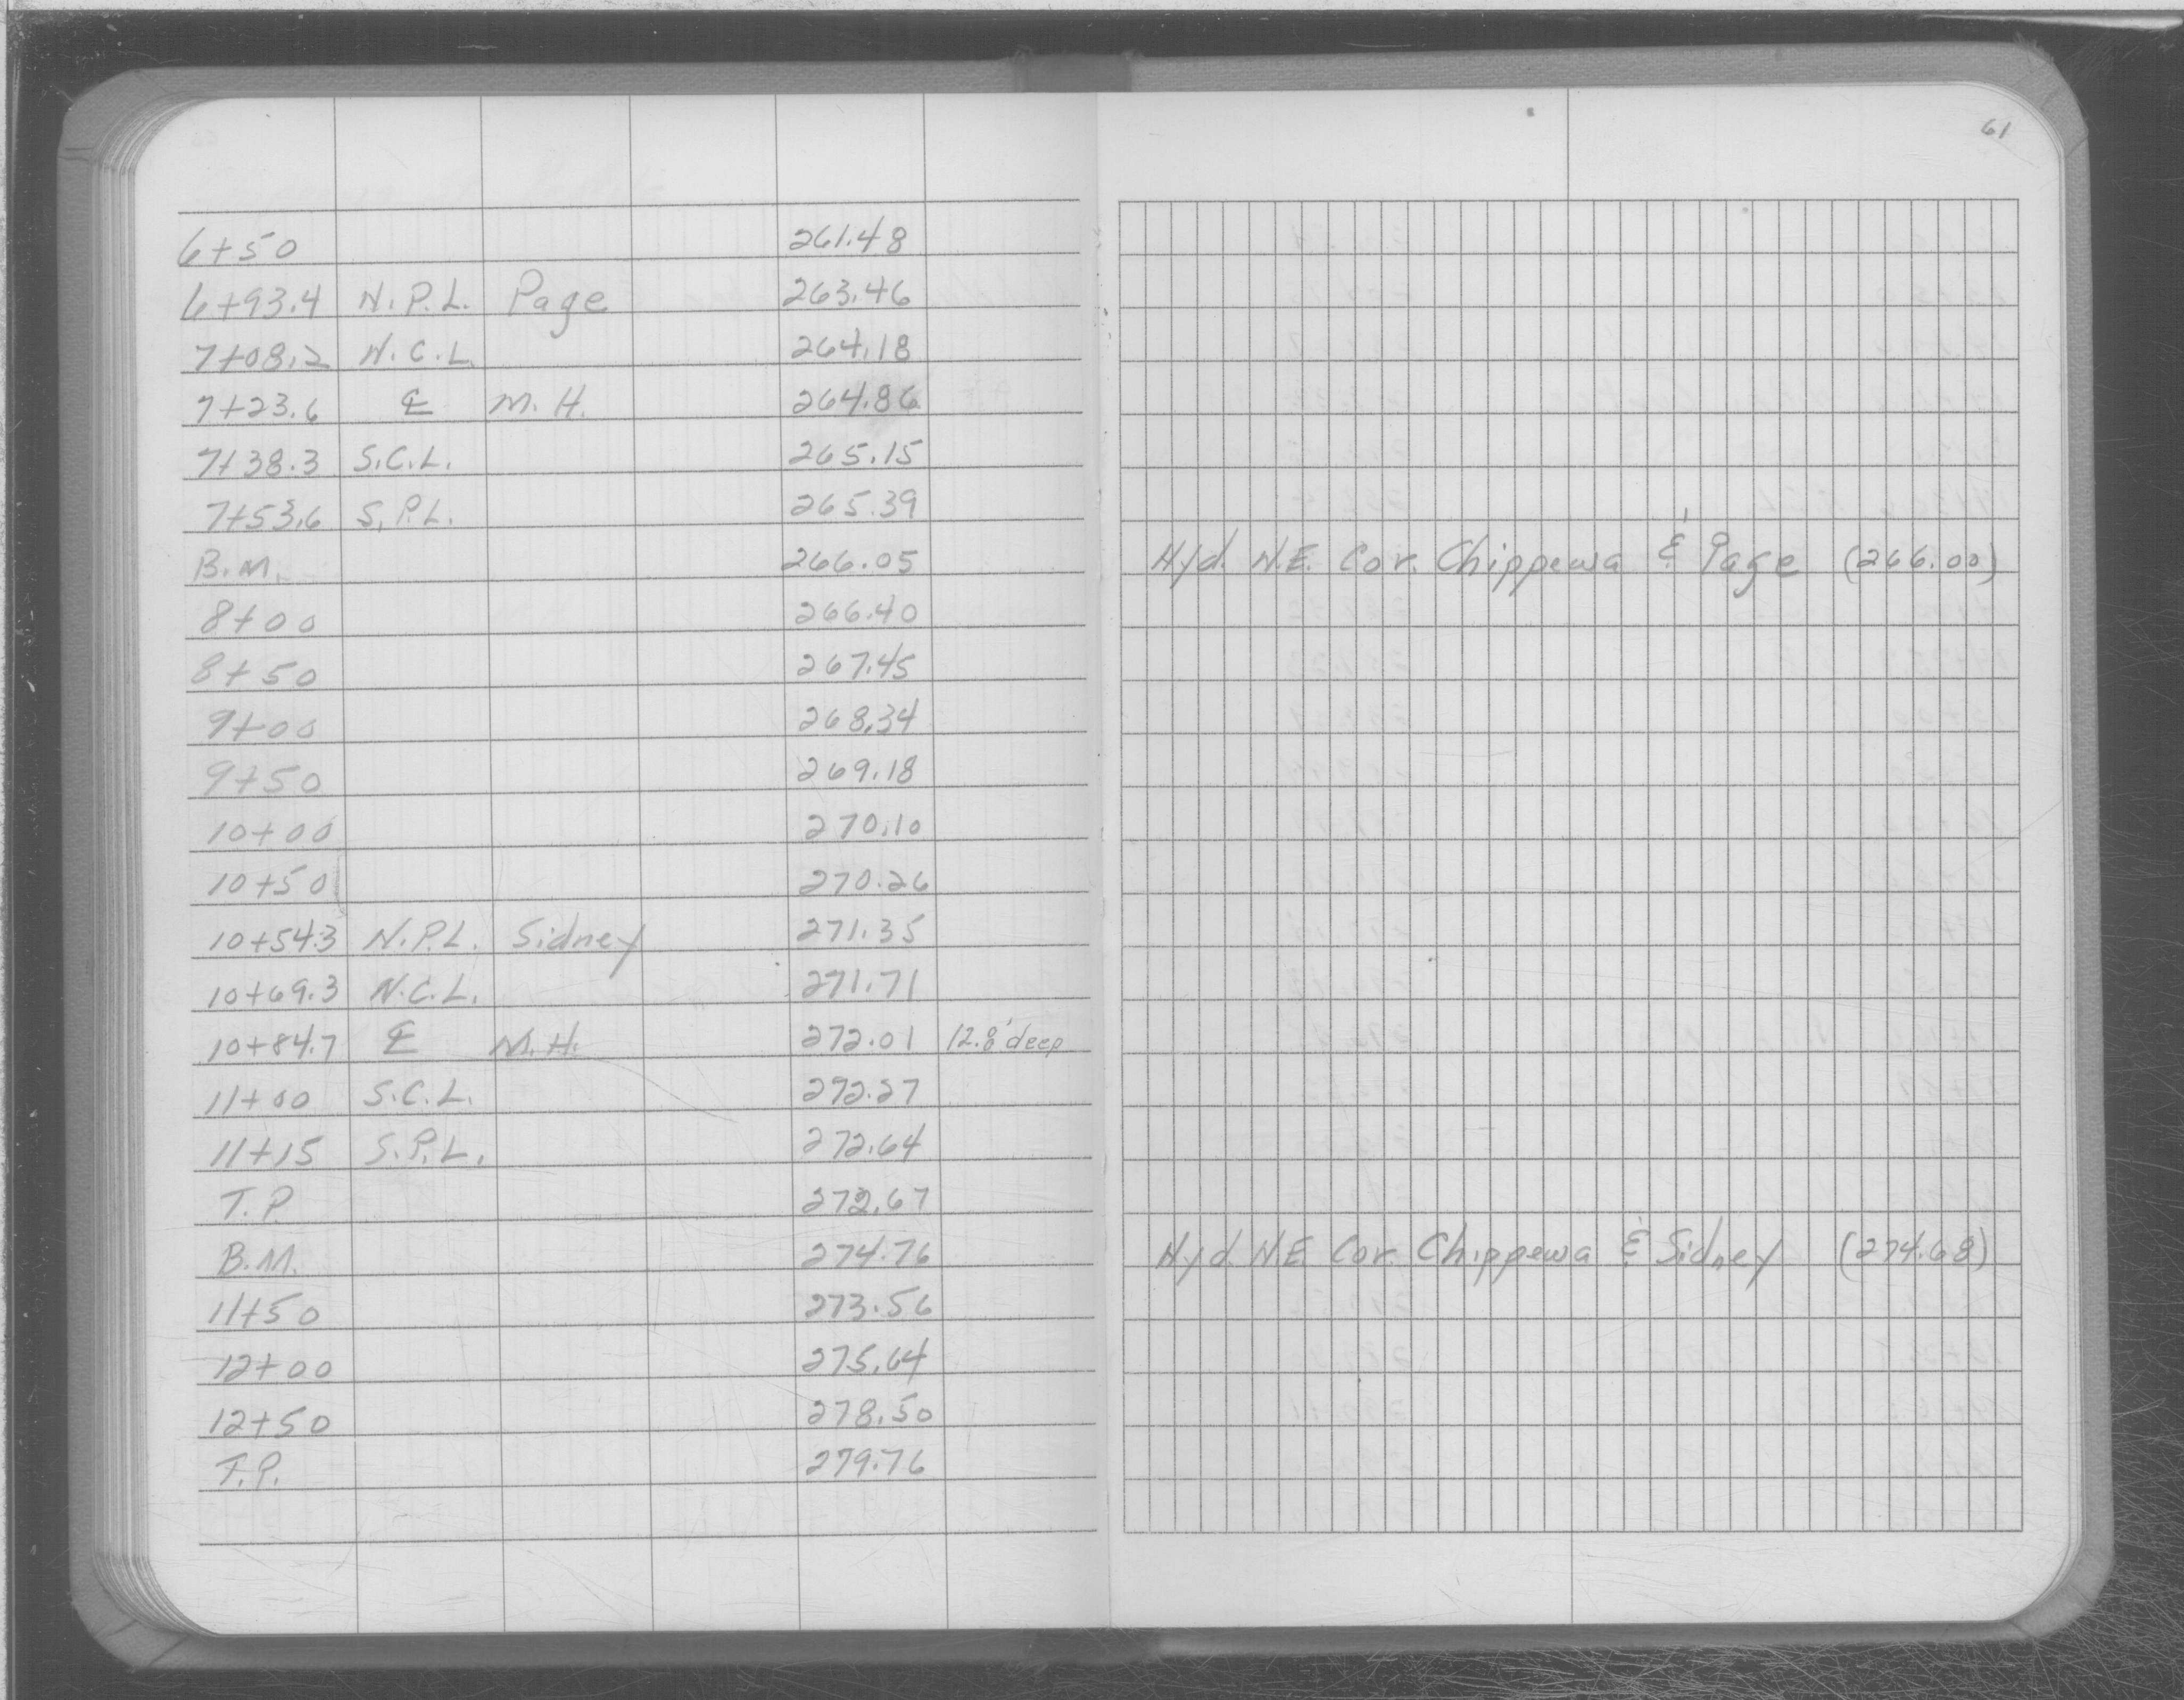 61
6+50 261.48
6+93.4 N.P.L. Page 263.46
7+08.2 N.C.L. 264.18
7+23.6 ℄ M.H. 264.86
7+38.3 S.C.L. 265.15
7+53.6 S.P.L. 265.39
B.M. 266.05 Hyd. N.E. Cor. Chippewa & Page (266.00)
8+00 266.40
8+50 267.45
9+00 268.34
9+50 269.18
10+00 270.10
10+50 270.26
10+54.3 N.P.L. Sidney 271.35
10+69.3 N.C.L. 271.71
10+84.7 ℄ M.H. 272.01 12.8' deep
11+00 S.C.L. 272.27
11+15 S.P.L. 272.64
T.P. 272.67
B.M. 274.76 Hyd. N.E. Cor. Chippewa & Sidney (274.68)
11+50 273.56
12+00 275.64
12+50 278.50
T.P. 279.76